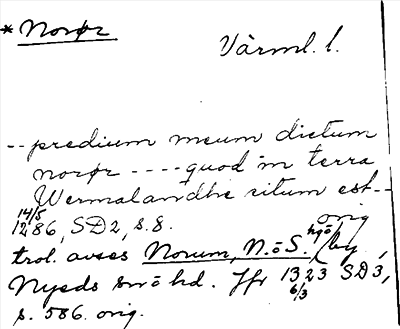 * Norør
Värml. l.
-- predium meum dictum
norør ---- quod in terra
Wermalandhe situm est --
14/5 1286, SD2, s. 8. orig
trol. avses Norum, N. o S. hgö by,
Nyeds snö hd. Jfr 1323 6/3 SD3,
s. 586. orig.